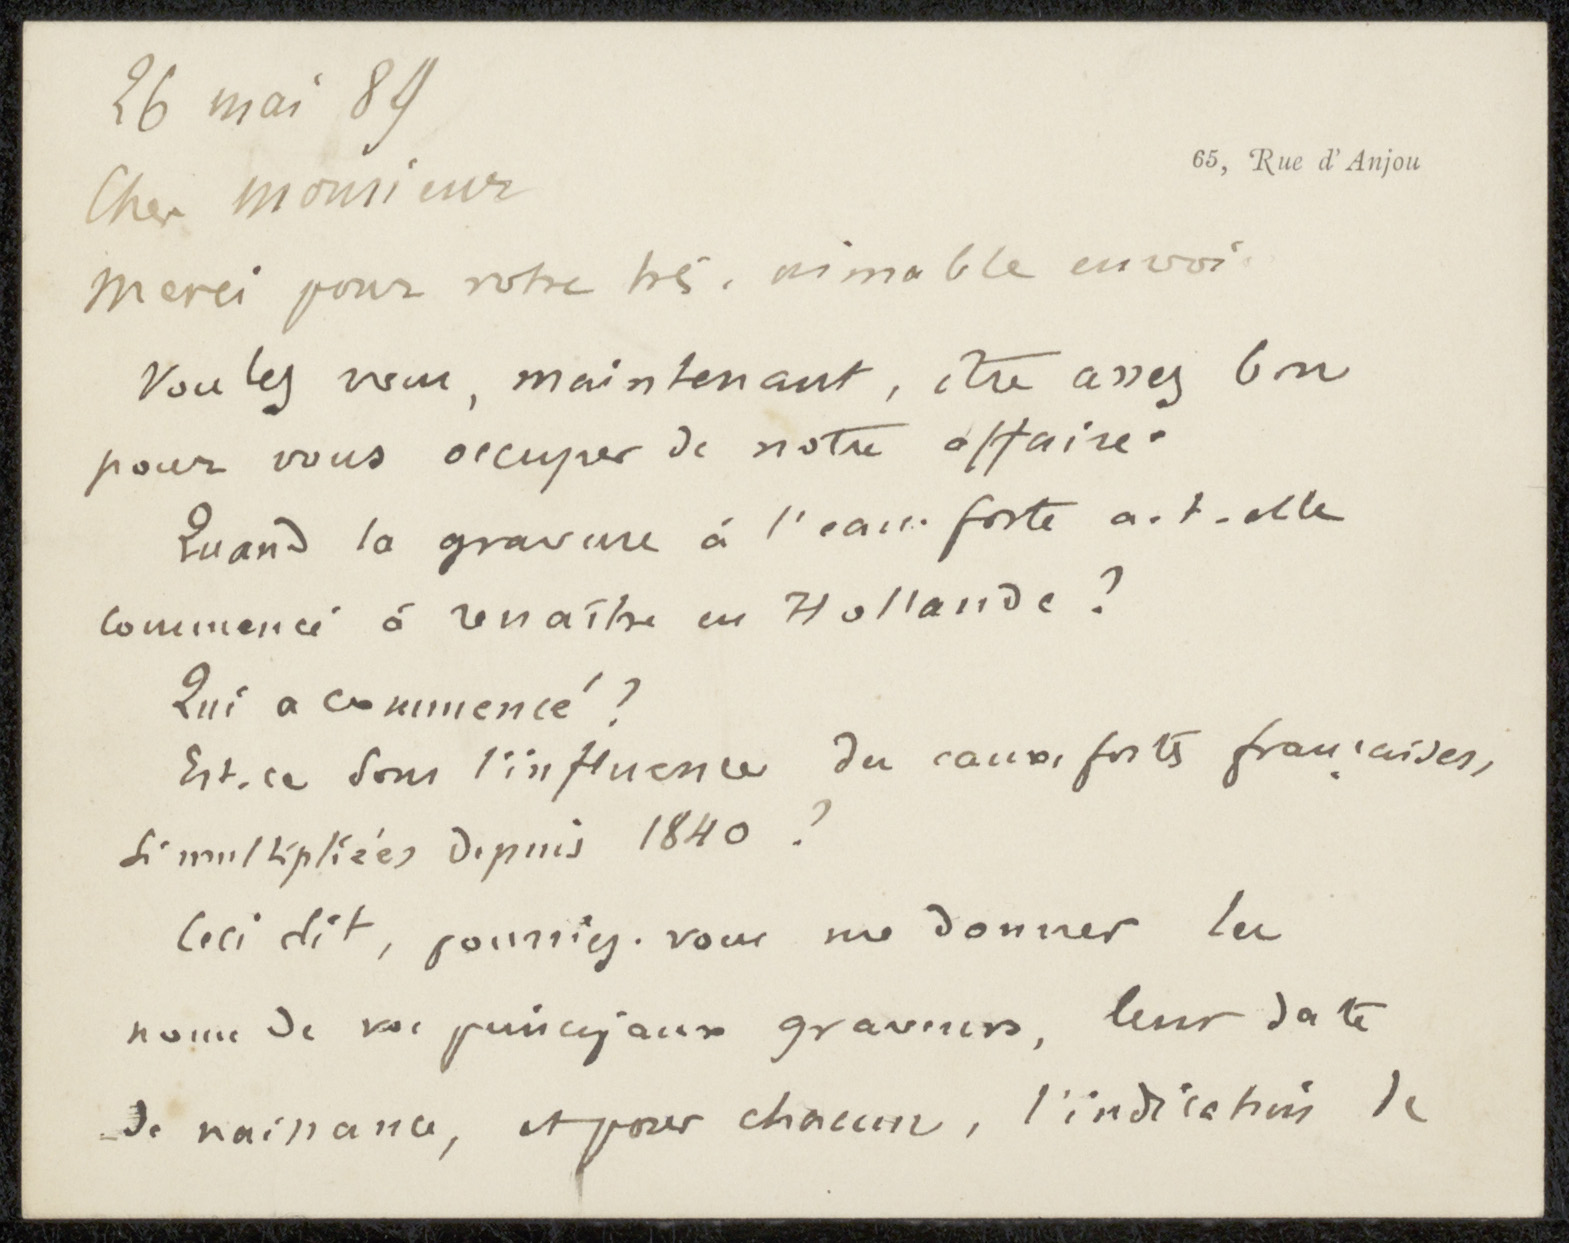 26 mai 89
65, Rue d'Anjou
Cher monsieur
Merci pour votre très aimable envoi.
Voulez vous, maintenant, être assez bon
pour vous occuper de notre affaire.
Quand la gravure à l'eau-forte a-t-elle
commencé à renaître en Hollande ?
Qui a commencé ?
Est-ce sous l'influence des eaux fortes françaises,
si multipliées depuis 1840 ?
Ceci dit, pourriez-vous me donner les
noms de vos principaux graveurs, leur date
de naissance, et pour chacun, l'indication de